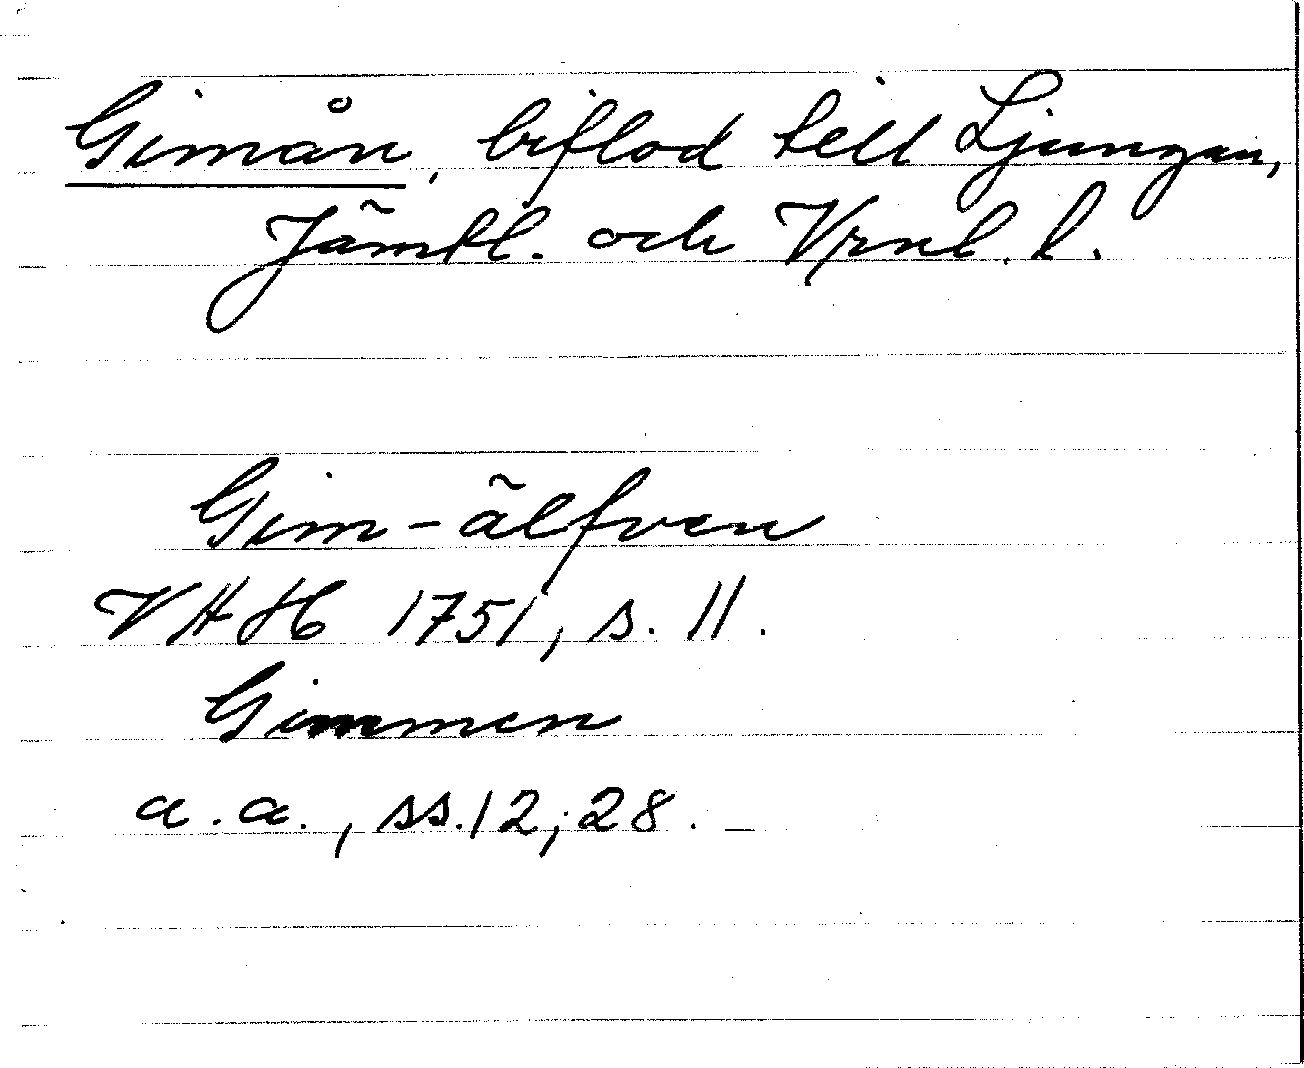 Gimån, biflod till Ljungan,
Jämtl. och Vrnl. l.
Gim-älfven
VHH 1751, s. 11.
Gimmen
a.a., ss. 12; 28. —